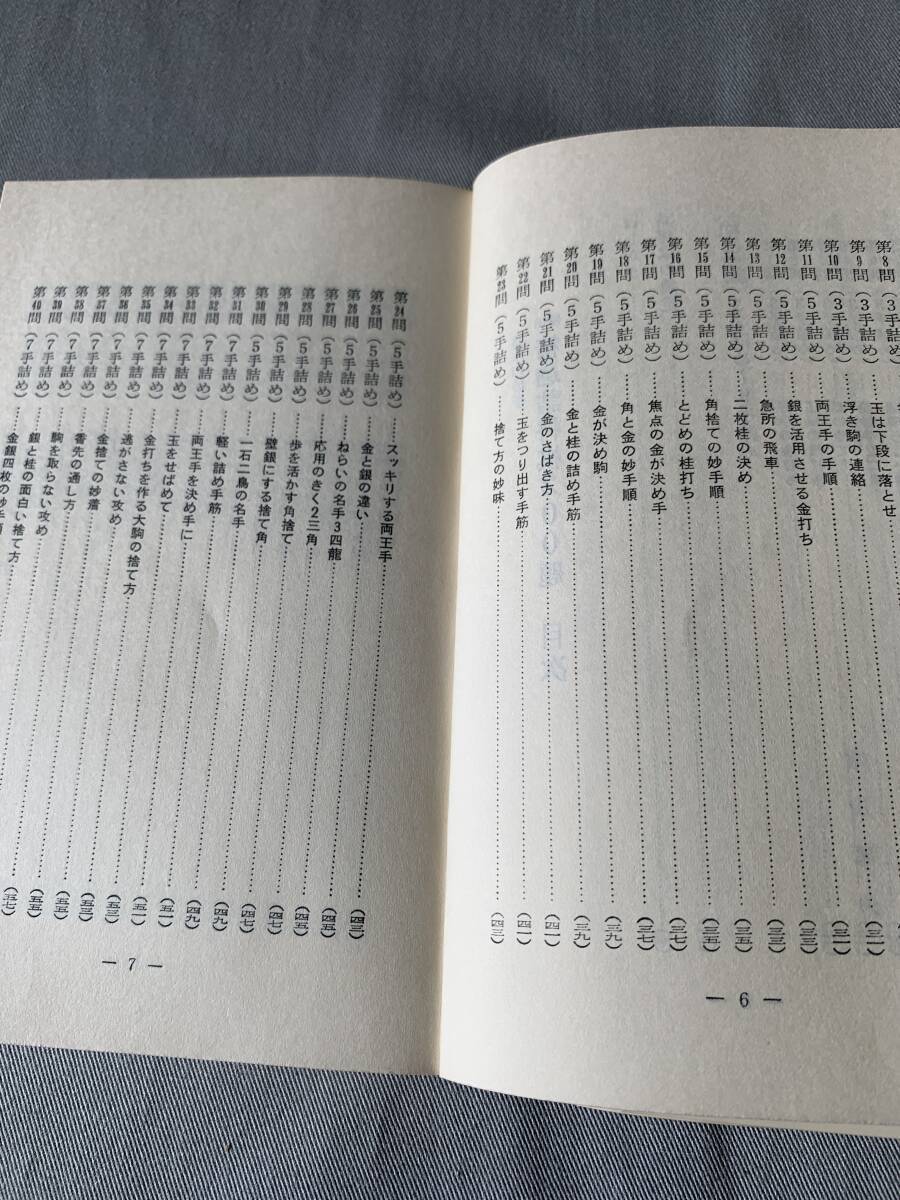 第8問(3手詰め)
第9問(3手詰め)……玉は下段に落とせ
第10問(3手詰め)……浮き駒の連絡
第11問(5手詰め)……両王手の手順……(三一)
第12問(5手詰め)……銀を活用させる金打ち……(三一)
第13問(5手詰め)……急所の飛車……(三三)
第14問(5手詰め)……二枚桂の決め……(三三)
第15問(5手詰め)……角捨ての妙手順……(三五)
第16問(5手詰め)……とどめの桂打ち……(三五)
第17問(5手詰め)……焦点の金が決め手……(三七)
第18問(5手詰め)……角と金の妙手順……(三七)
第19問(5手詰め)……金が決め駒……(三九)
第20問(5手詰め)……金と桂の詰め手筋……(三九)
第21問(5手詰め)……金のさばき方……(四一)
第22問(5手詰め)……玉をつり出す手筋……(四一)
第23問(5手詰め)……捨て方の妙味……(四三)
— 6 —
第24問(5手詰め)……スッキリする両王手……(四三)
第25問(5手詰め)……金と銀の違い……(四五)
第26問(5手詰め)……ねらいの名手3四龍……(四五)
第27問(5手詰め)……応用のきく2三角……(四七)
第28問(5手詰め)……歩を活かす角捨て……(四七)
第29問(5手詰め)……壁銀にする捨て角……(四九)
第30問(5手詰め)……一石二鳥の名手……(四九)
第31問(7手詰め)……軽い詰め手筋……(五一)
第32問(7手詰め)……両王手を決め手に……(五一)
第33問(7手詰め)……玉をせばめて……(五三)
第34問(7手詰め)……金打ちを作る大駒の捨て方……(五三)
第35問(7手詰め)……逃がさない攻め……(五五)
第36問(7手詰め)……金捨ての妙落……(五五)
第37問(7手詰め)……香先の通し方……(五七)
第38問(7手詰め)……駒を取らない攻め
第39問(7手詰め)……銀と桂の面白い捨て方
第40問(7手詰め)……金銀四枚の妙手順
— 7 —